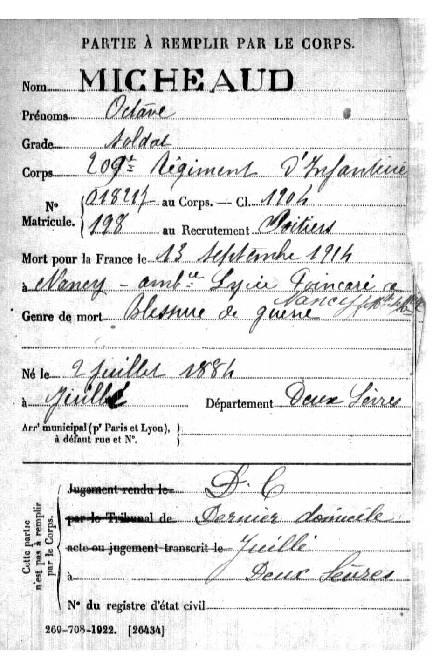 PARTIE À REMPLIR PAR LE CORPS.
Nom MICHEAUD
Prénoms Octave
Grade Soldat
Corps 209e Régiment d'Infanterie
N° Matricule. 018217 au Corps. — Cl. 1904
198 au Recrutement Poitiers
Mort pour la France le 13 Septembre 1914
à Nancy - ambce Lycée Poincaré
Nancy
Genre de mort Blessure de guerre
Né le 2 juillet 1884
à Juillé Département Deux Sèvres
Arrt municipal (pr Paris et Lyon), à défaut rue et N°.
Cette partie n'est pas à remplir par le Corps.
Jugement rendu le D.C
par le Tribunal de Dernier domicile
acte ou jugement transcrit le Juillé
à Deux Sèvres
N° du registre d'état civil
269-708-1922. [26434]